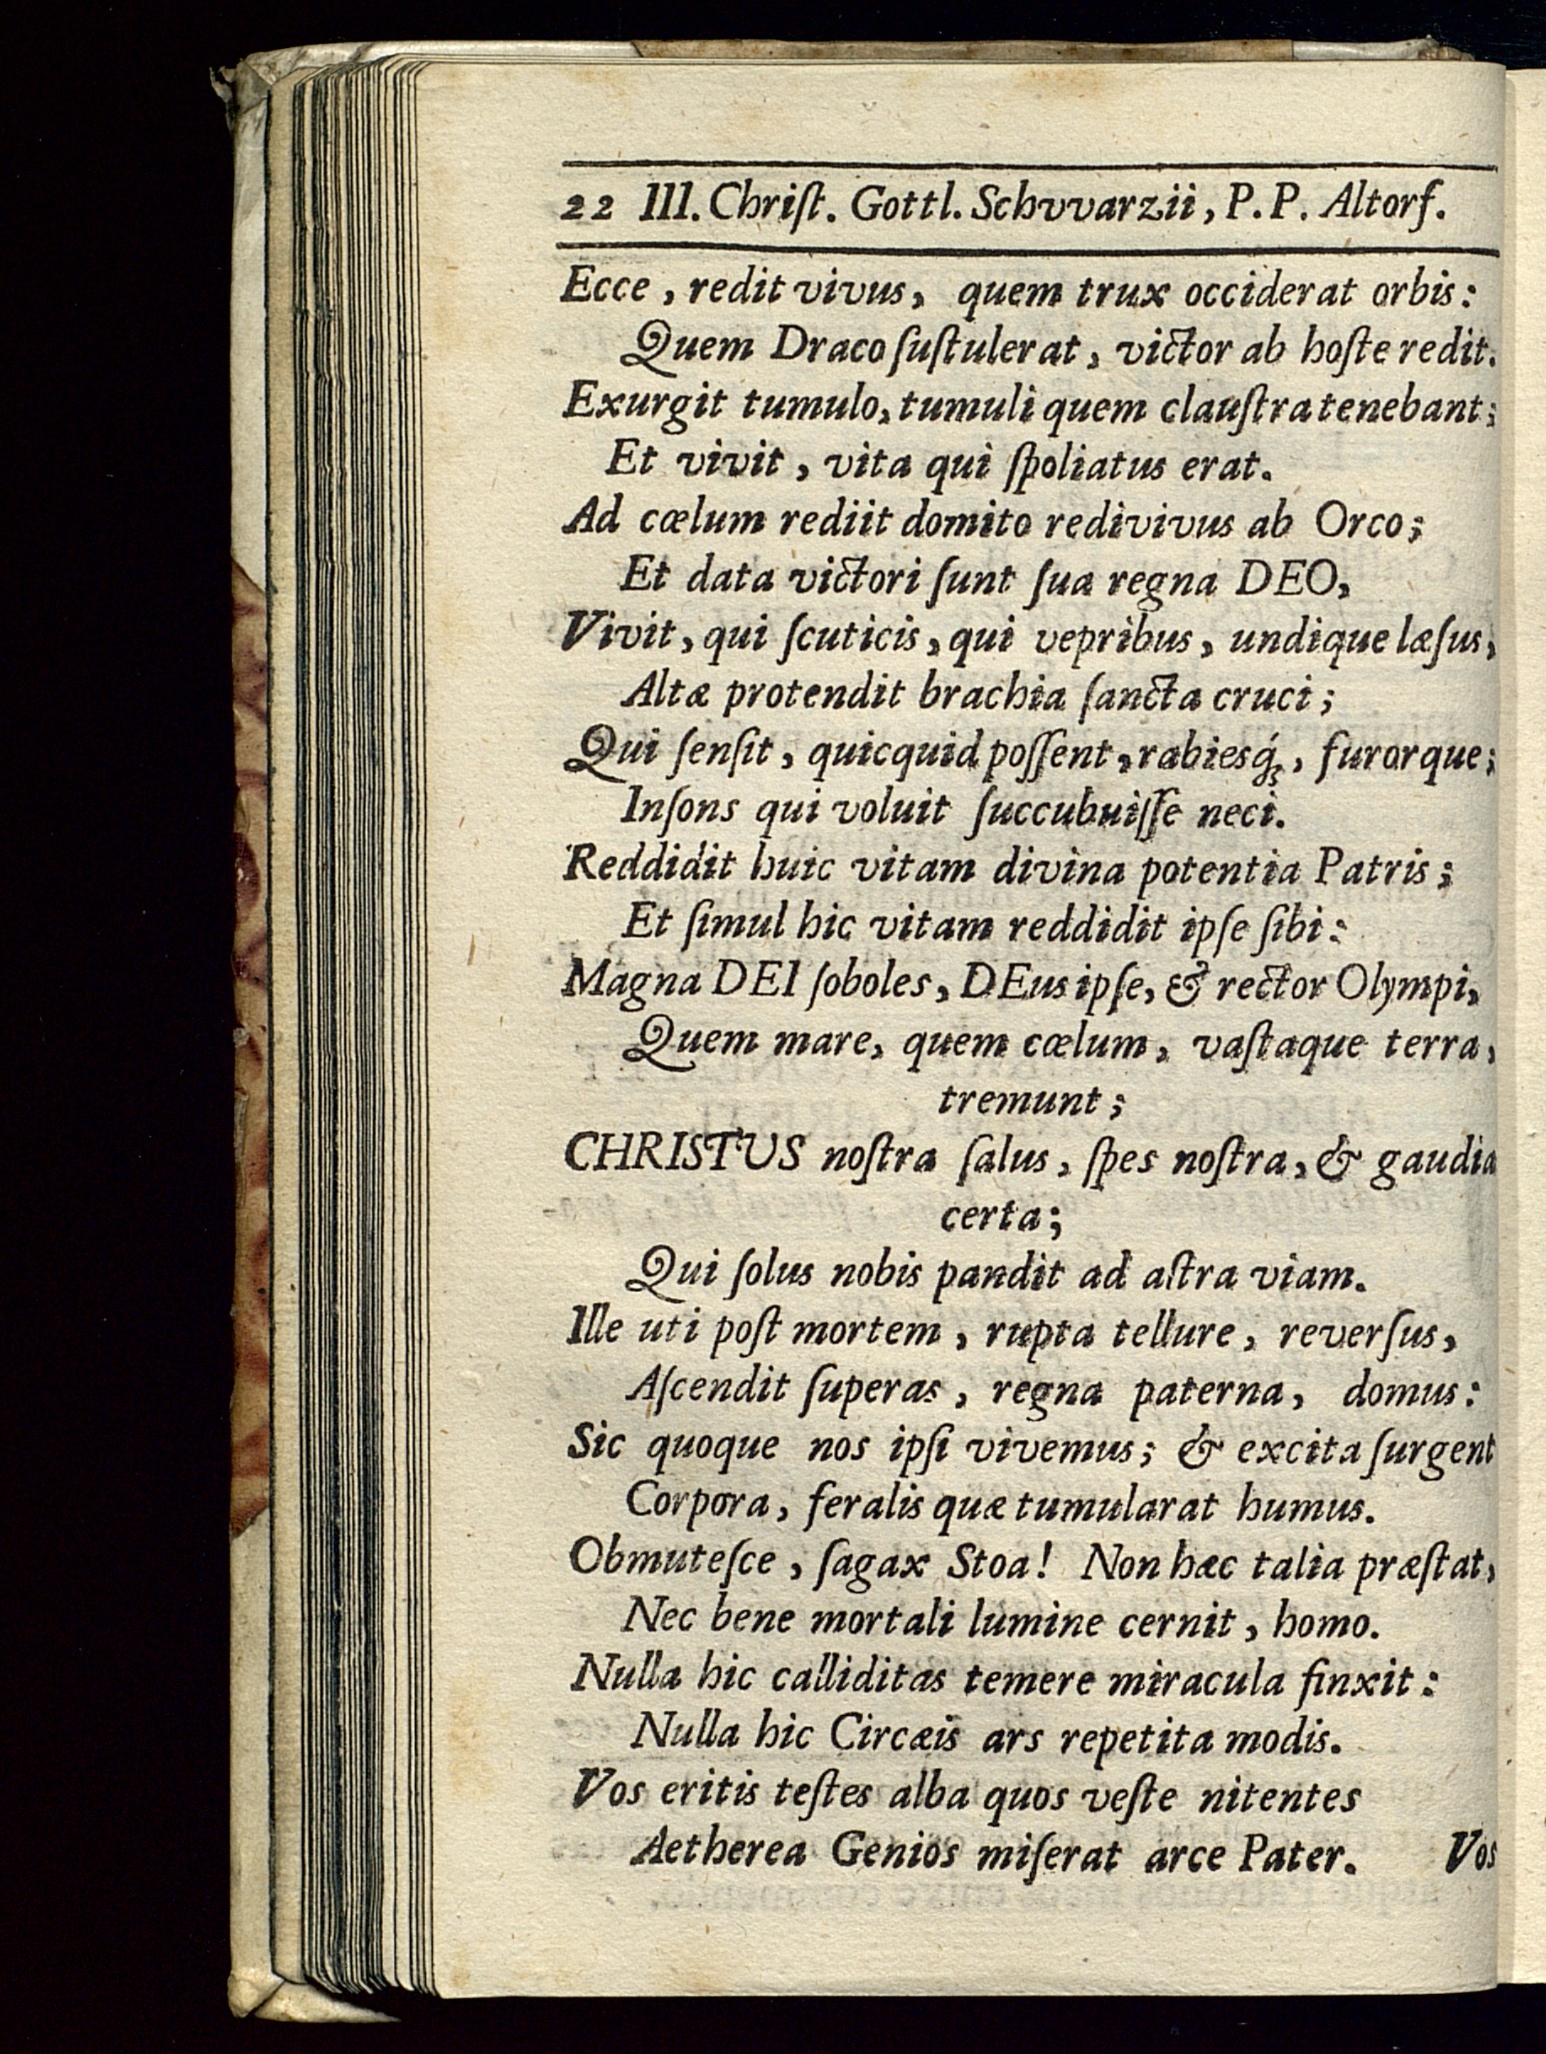 22 III. Chriſt. Gottl. Schvvarzii, P. P. Altorf.
Ecce, redit vivus, quem trux occiderat orbis:
Quem Draco ſuſtulerat, victor ab hoſte redit.
Exurgit tumulo, tumuli quem clauſtra tenebant;
Et vivit, vita qui ſpoliatus erat.
Ad cœlum rediit domito redivivus ab Orco;
Et data victori ſunt ſua regna DEO,
Vivit, qui ſcuticis, qui vepribus, undique læſus,
Altæ protendit brachia ſancta cruci;
Qui ſenſit, quicquid poſſent, rabiesq́;, furorque;
Inſons qui voluit ſuccubuiſſe neci.
Reddidit huic vitam divina potentia Patris;
Et ſimul hic vitam reddidit ipſe ſibi:
Magna DEI ſoboles, DEus ipſe, & rector Olympi,
Quem mare, quem cœlum, vaſtaque terra,
tremunt;
CHRISTUS noſtra ſalus, ſpes noſtra, & gaudia
certa;
Qui ſolus nobis pandit ad aſtra viam.
Ille uti poſt mortem, rupta tellure, reverſus,
Aſcendit ſuperas, regna paterna, domus:
Sic quoque nos ipſi vivemus; & excita ſurgent
Corpora, feralis quæ tumularat humus.
Obmuteſce, ſagax Stoa! Non hæc talia præſtat,
Nec bene mortali lumine cernit, homo.
Nulla hic calliditas temere miracula finxit:
Nulla hic Circæis ars repetita modis.
Vos eritis teſtes alba quos veſte nitentes
Aetherea Genios miſerat arce Pater. Vos